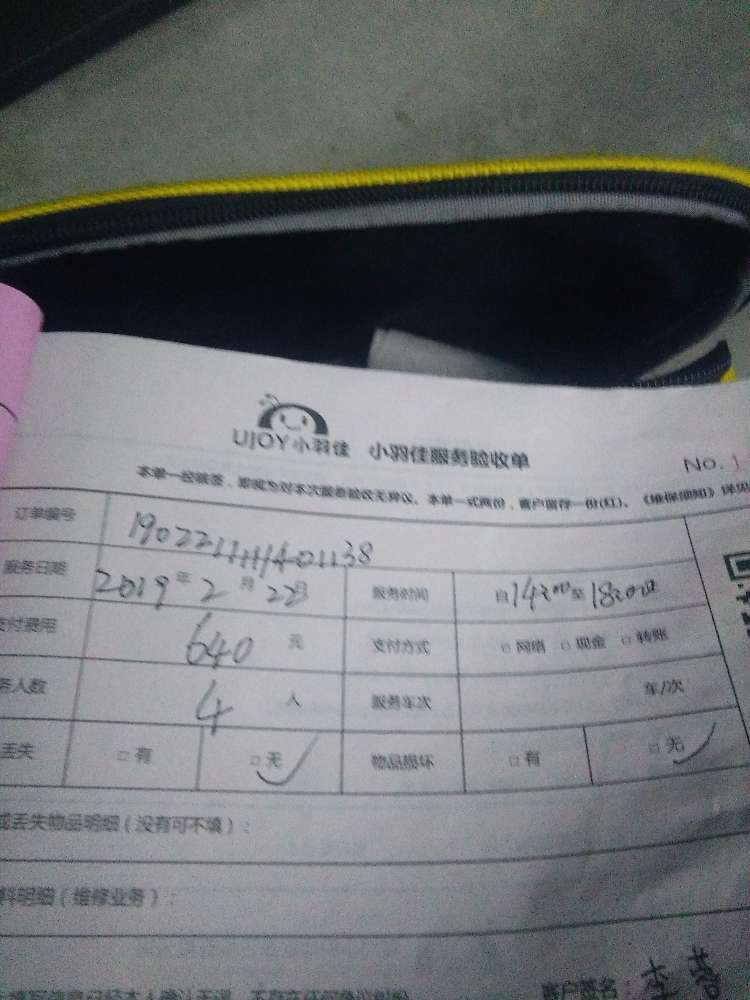 UJOY小羽佳 小羽佳服务验收单
No.
本单一经核签，即视为对本次服务验收无异议。本单一式两份，客户留存一份(红)。《维保须知》详见
订单编号
服务日期 2019年2月22日 服务时间 自14:00至18:00止
支付费用 640元 支付方式 □网络 □现金 □转账
务人数 4人 服务车次 车/次
丢失 □有 □无 物品损坏 □有 □无
或丢失物品明细（没有可不填）：
料明细（维修业务）：
客户签名：